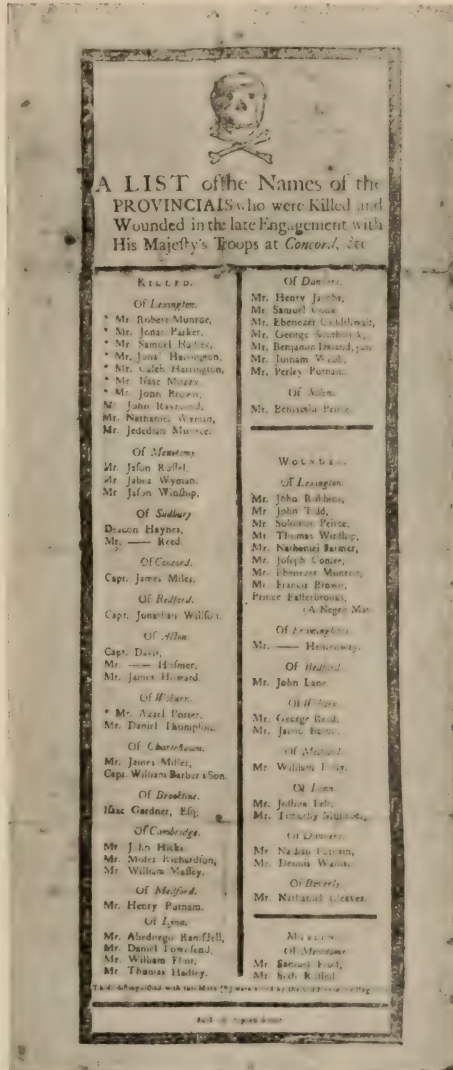 A LIST of the Names of the
PROVINCIALS who were Killed and
Wounded in the late Engagement with
His Majeſty's Troops at Concord, &c.
KILLED.
Of Lexington.
* Mr. Robert Munroe,
* Mr. Jonas Parker,
* Mr. Samuel
* Mr. Jona Harrington,
* Mr. Caleb Harrington,
* Mr. Iſaac
* Mr. John Brown,
Mr. John
Mr. Nathaniel Wyman,
Mr. Jedediah Munroe.
Of Menotomy
Mr. Jaſon Ruſſel,
Mr Jabez Wyman,
Mr Jaſon Winſhip,
Of Sudbury
Deacon Haynes,
Mr. —— Reed.
Of Concord.
Capt. James Miles.
Of Bedford.
Capt. Jonathan Willſon.
Of Acton
Capt. Davis,
Mr. —— Hoſmer,
Mr. James Howard.
Of Woburn.
* Mr. Azael Porter,
Mr. Daniel Thompſon.
Of Charleſtown.
Mr. James Miller,
Capt. William Barber's Son.
Of Brookline.
Iſaac Gardner, Eſq;
Of Cambridge.
Mr John Hicks,
Mr. Moſes Richardſon,
Mr. William Maſſey.
Of Medford.
Mr. Henry Putnam.
Of Lynn.
Mr. Abednego Ramſdell,
Mr. Daniel Townſend,
Mr. William Flint,
Mr. Thomas Hadley.
Of Danvers.
Mr. Henry Jacobs,
Mr. Samuel Cook,
Mr. Ebenezer
Mr. George
Mr. Benjamin
Mr. Jotham
Mr. Perley Putnam.
Of Salem.
Mr. Benjamin Peirce.
WOUNDED.
Of Lexington.
Mr. John Robbins,
Mr John Tidd,
Mr Solomon Peirce,
Mr Thomas Winſhip,
Mr. Nathaniel Farmer,
Mr. Joſeph Comee,
Mr. Ebenezer Munroe,
Mr Francis Brown,
Prince Eaſterbrooks,
(A Negro Man
Of Framingham
Mr. —— Hemenway.
Of Bedford.
Mr. John Lane
Of Woburn.
Mr. George Reed,
Mr. Jacob
Of Medford.
Mr William
Of Lynn
Mr. Joſhua Felt,
Mr. Timothy
Of Danvers.
Mr. Nathan Putnam,
Mr. Dennis
Of Beverly
Mr. Nathaniel Cleaves.
MISSING
Of Menotomy
Mr Samuel Froſt,
Mr Seth Ruſſell
Thoſe diſtinguiſhed with this Mark [*] were killed by the firſt